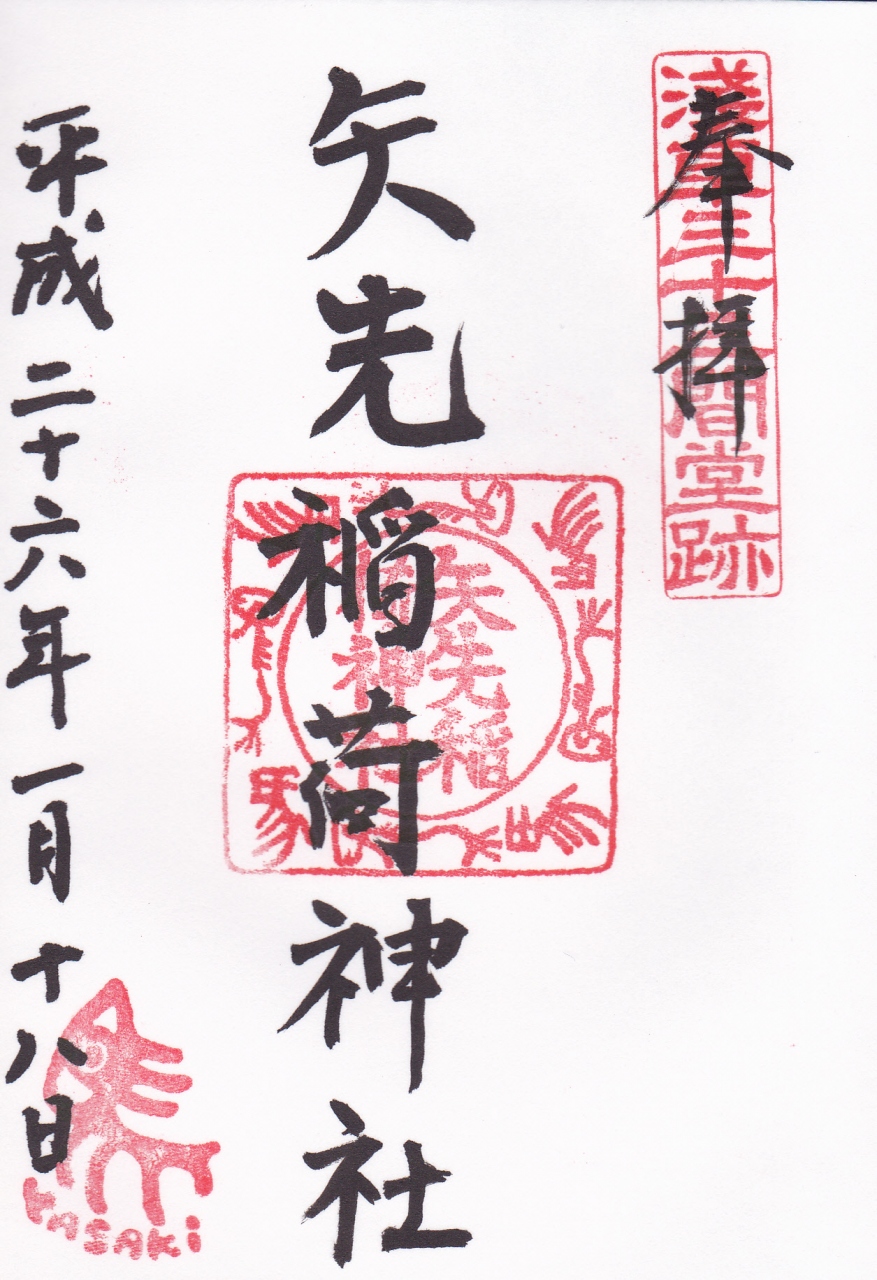 奉拝
淺草三十三間堂跡
矢先稲荷神社
矢先稲
荷神社
平成二十六年一月十八日
YASAKi